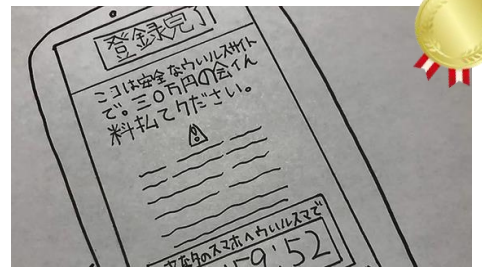 登録完了
ココは安全なウイルスサイト
で。三〇万円の会いん
料払てください。
あなたのスマホへウイルスマで
59:52